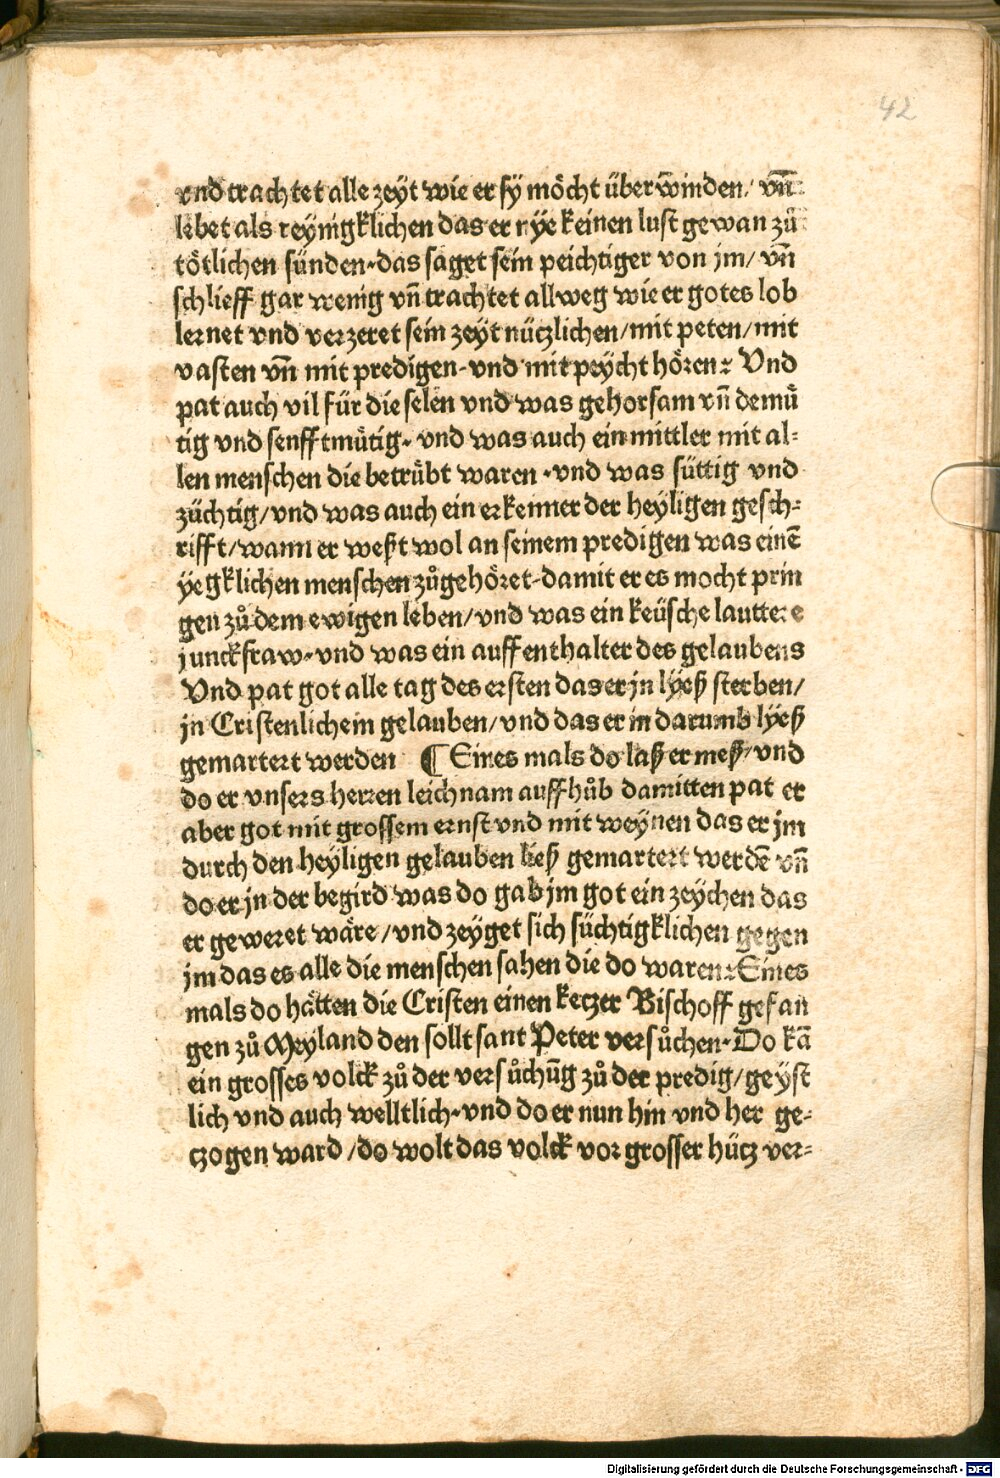 42
vnd trachtet alle zeyt wie er sy möcht überwinden/ vn̄
lebet als reynigklichen das er nye keinen lust gewan zů
tötlichen sünden·das saget sein peichtiger von jm/ vn̄
schlieff gar wenig vn̄ trachtet allweg wie er gotes lob
lernet vnd verzeret sein zeyt nüczlichen/mit peten/mit
vasten vn̄ mit predigen·vnd mit peycht hören: Vnd
pat auch vil für die selen vnd was gehorsam vn̄ demů
tig vnd senfftmůtig· vnd was auch ein mittler mit al⸗
len menschen die betrůbt waren ·vnd was süttig vnd
züchtig/vnd was auch ein erkenner der heyligen gesch⸗
rifft/wann er weßt wol an seinem predigen was einē
yegklichen menschen zůgehöret·damit er es mocht prin
gen zů dem ewigen leben/vnd was ein keüsche lauttere
junckfraw·vnd was ein auffenthalter des gelaubens
Vnd pat got alle tag des ersten das er jn lyeß sterben/
jn Cristenlichem gelauben/vnd das er in darumb lyeß
gemartert werden ¶ Eines mals do laß er meß/vnd
do er vnsers herren leichnam auffhůb damitten pat er
aber got mit grossem ernst vnd mit weynen das er jm
durch den heyligen gelauben ließ gemartert werdē vn̄
do er jn der begird was do gab jm got ein zeychen das
er geweret wäre/vnd zeyget sich süchtigklichen gegen
jm das es alle die menschen sahen die do waren: Eines
mals do hätten die Cristen einen keczer Bischoff gefan
gen zů Meyland den sollt sant Peter versůchen·Do kā
ein grosses volck zů der versůchūg zů der predig/geyst
lich vnd auch welltlich·vnd do er nun hin vnd her ge⸗
czogen ward /do wolt das volck vor grosser hücz ver⸗
Digitalisierung gefördert durch die Deutsche Forschungsgemeinschaft - DFG